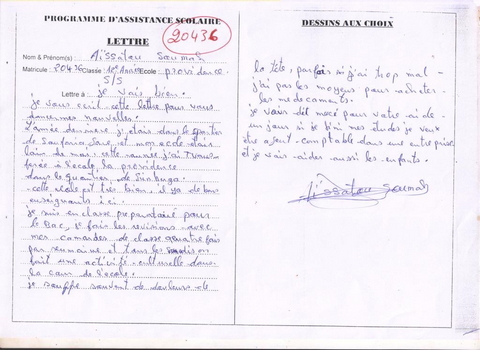 PROGRAMME D'ASSISTANCE SCOLAIRE
LETTRE
20436
Nom & Prénom(s): Aïssatou Soumah
Matricule: 20436 Classe: 10e Année Ecole: providence
S/S
Lettre à: je vais bien.
je vous ecrit cette lettre pour vous
donner mes nouvelles.
L'année derniere j'etais dans le quartier
de Sonfonia Gare, et mon ecole etais
loin de moi; cette année j'ai
à l'ecole la providence
dans le quartier de
cette ecole est très bien, il ya de bons
enseignants ici.
je suis en classe preparatoire pour
le Bac, je fais les revisions avec
mes camarades de classe quatre fois
par semaine et tous les on
fait une activité culturelle dans
la cour de l'ecole.
je souffre souvent de douleurs de
DESSINS AUX CHOIX
la tête, parfois si j'ai trop mal
j'ai pas les moyens pour acheter
les medicaments.
je vous dit merci pour votre aide
un jour si je fini mes études je veux
être agent comptable dans une entreprise
et je vais aider aussi les enfants.
Aïssatou Soumah